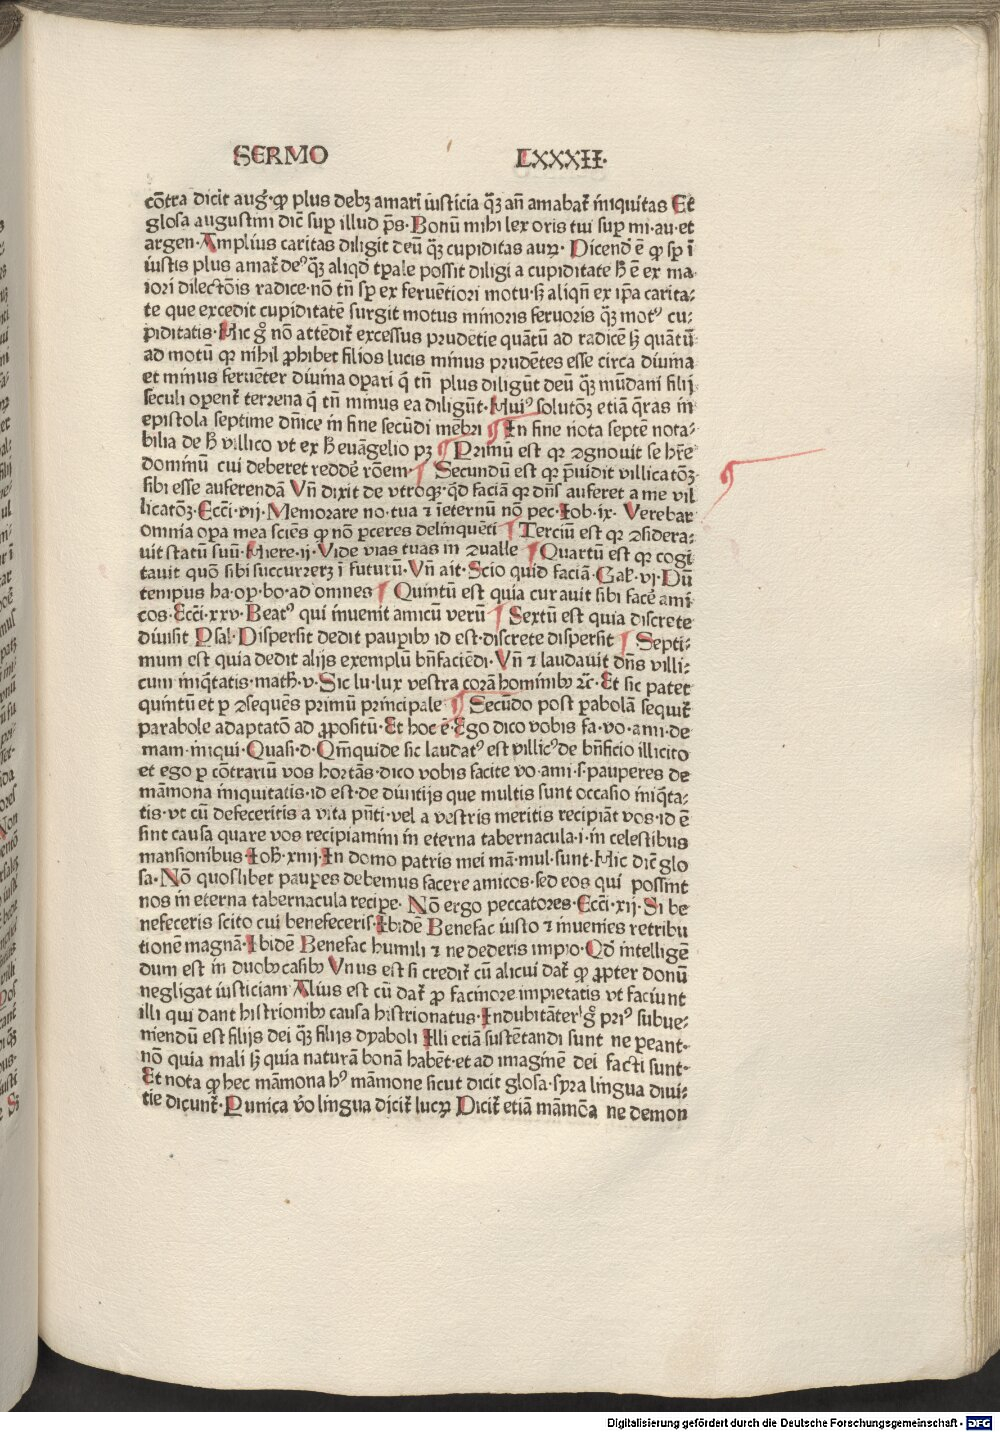 SERMO LXXXII.
cōtra dicit aug̃· ꝙ plus debꝫ amari iusticia q̃ꝫ añ amabat̃ iniquitas Et
glosa augustini dic̃ suꝑ illud p̃s· Bonũ mihi lex oris tui suꝑ mi·au·et
argen· Amplius caritas diligit deũ q̃ꝫ cupiditas auꝝ· Dicend̃ ē ꝙ sꝑ ī
iustis plus amat̃ deꝰ q̃ꝫ aliqd̃ tꝑale possit diligi a cupiditate h̃ ē ex ma⸗
iori dilectōis radice· nō tñ sꝑ ex feruētiori motu· sꝫ aliqñ ex ip̃a carita⸗
te que excedit cupiditatē surgit motus minoris feruoris q̃ꝫ motꝰ cu⸗
piditatis· Hic g̊ nō attēdit̃ excessus prudētie quātũ ad radicē sꝫ quātũ
ad motũ qꝛ nihil ꝓhibet filios lucis minus prudētes esse circa diuina
et minus feruēter diuina oꝑari q̃ tñ plus diligũt deũ q̃ꝫ mũdani filij
seculi oꝑent̃ terrena q̃ tñ minus ea diligũt· Huiꝰ solutōꝫ etiā q̃ras in
epistola septime dñice in fine secũdi mẽbri ¶ In fine nota septē nota⸗
bilia de h̃ villico vt ex h̃ euāgelio pꝫ ¶ Primũ est qꝛ ꝯgnouit se hr̃e
dominũ cui deberet redde᷑ rōem· ¶ Secundũ est qꝛ p̃uidit villicatōꝫ
sibi esse auferendā Vñ dixit de vtroqꝫ· q̃d faciā qꝛ dñs auferet a me vil
licatōꝫ· Ecci· vij· Memorare no·tua ⁊ ineternũ nō pec· Iob·ix· Verebar
omnia opa mea sciēs ꝙ nō ꝑceres delinquēti ¶ Terciũ est qꝛ ꝯsidera⸗
uit statũ suũ· Hiere· ij· Vide vias tuas in ꝯualle ¶ Quartũ est qꝛ cogi
tauit quō sibi succurrerꝫ ī futurũ· Vñ ait· Scio quid faciā· Gal̃· vj· Dũ
tempus ha·op·bo·ad omnes ¶ Quintũ est quia curauit sibi face᷑ ami
cos· Ecci· xxv· Beatꝰ qui inuenit amicũ verũ ¶ Sextũ est quia discrete
diuisit Psal· Dispersit dedit pauꝑibꝰ id est· discrete dispersit ¶ Septi⸗
mum est quia dedit alijs exemplũ bñfaciēdi· Vñ ⁊ laudauit dñs villi⸗
cum iniq̃tatis· math̃·v· Sic lu·lux vestra corā hominibꝰ ⁊c̃· Et sic patet
quintũ et ꝑ ꝯsequēs primũ principale ¶ Secũdo post ꝑabolā sequit̃
parabole adaptatō ad ꝓpositũ· Et hoc ē· Ego dico vobis fa·vo·ami·de
mam·iniqui· Quasi·d· Qm̃quide sic laudatꝰ est villicꝰ de bñficio illicito
et ego ꝑ cōtrariũ vos hortās· dico vobis facite vo·ami· s· pauꝑes de
māmona iniquitatis· id est· de diuitijs que multis sunt occasio iniq̃ta⸗
tis· vt cũ defeceritis a vita p̃nti· vel a vestris meritis recipiāt vos· id ē
sint causa quare vos recipiamini in eterna tabernacula· i· in celestibus
mansionibus Ioh̃· xiiij· In domo patris mei mā·mul·sunt· Hic dic̃ glo
sa· Nō quoslibet pauꝑes debemus facere amicos· sed eos qui possint
nos in eterna tabernacula recipe· Nō ergo peccatores· Ecci· xij· Si be
nefeceris scito cui benefeceris· Ibidē Benefac iusto ⁊ inuenies retribu
tionē magnā· Ibidē Benefac humili ⁊ ne dederis impio· Qd̃ intelligē
dum est in duobꝰ casibꝰ Vnus est si credit̃ cũ alicui dat̃ ꝙ ꝓpter donũ
negligat iusticiam Alius est cũ dat̃ ꝓ facinore impietatis vt faciunt
illi qui dant histrionibꝰ causa histrionatus· Indubitāter g̊ priꝰ subue⸗
niendũ est filijs dei q̃ꝫ filijs dyaboli Illi etiā sustētandi sunt ne ꝑeant·
nō quia mali sꝫ quia naturā bonā habēt· et ad imaginē dei facti sunt·
Et nota ꝙ hec māmona hꝰ māmone sicut dicit glosa· syra lingua diui⸗
tie dicunt̃· Punica v̊o lingua dicit̃ lucꝝ Dicit̃ etiā māmōa ne demon